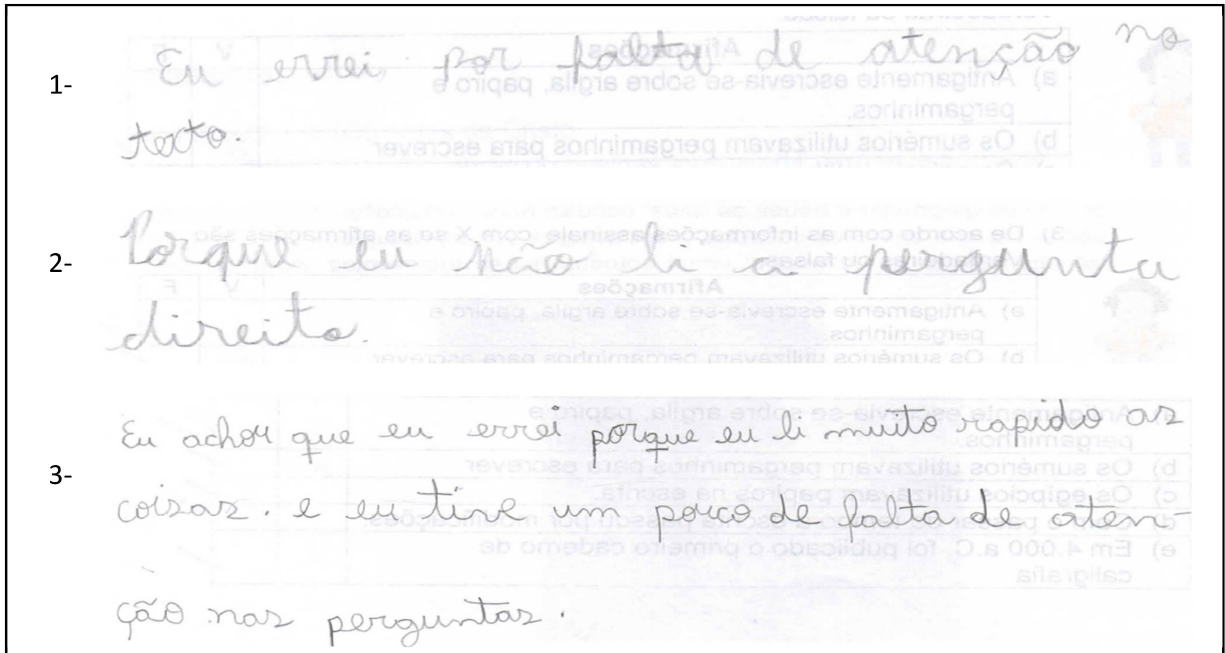 1- Eu errei por falta de atenção no
texto.
2- Porque eu não li a pergunta
direito.
Eu achou que eu errei porque eu li muito rapido as
3- coisas. e eu tive um pouco de falta de aten-
ção nas perguntas.